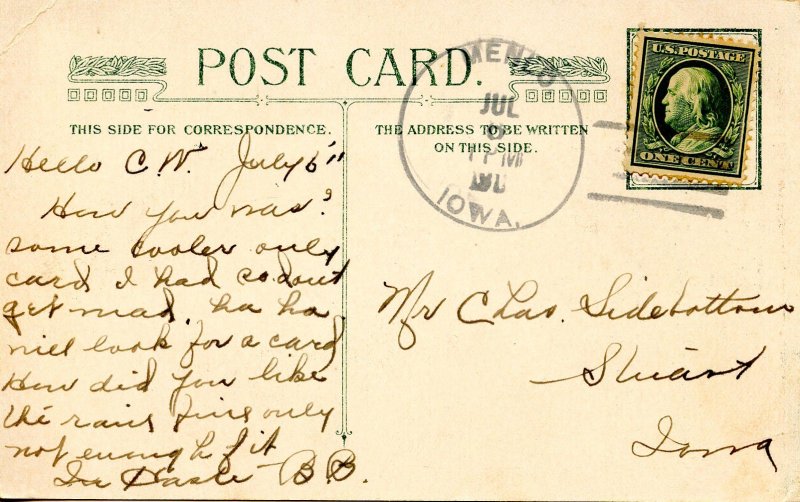 POST CARD.
THIS SIDE FOR CORRESPONDENCE.
THE ADDRESS TO BE WRITTEN
ON THIS SIDE.
MENLO
JUL
PM
IOWA.
U.S. POSTAGE
ONE CENT
Hello C.W. July 6"
How you was?
some cooler only
card I had so dont
get mad. ha ha.
will look for a card
How did you like
the rain fine only
not enough of it
In Haste B.B.
Mr Chas. Sidebottom
Stuart
Iowa